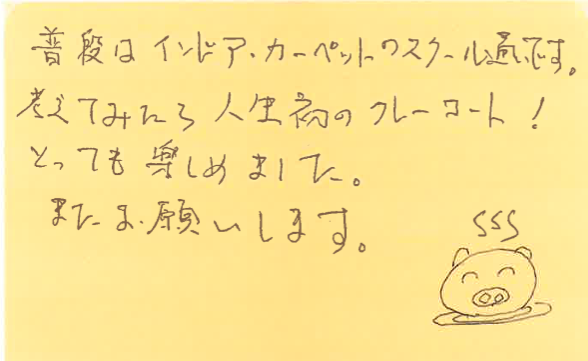 普段はインドア・カーペットのスクール通いです。
考えてみたら人生初のクレーコート!
とっても楽しめました。
またお願いします。
SSS